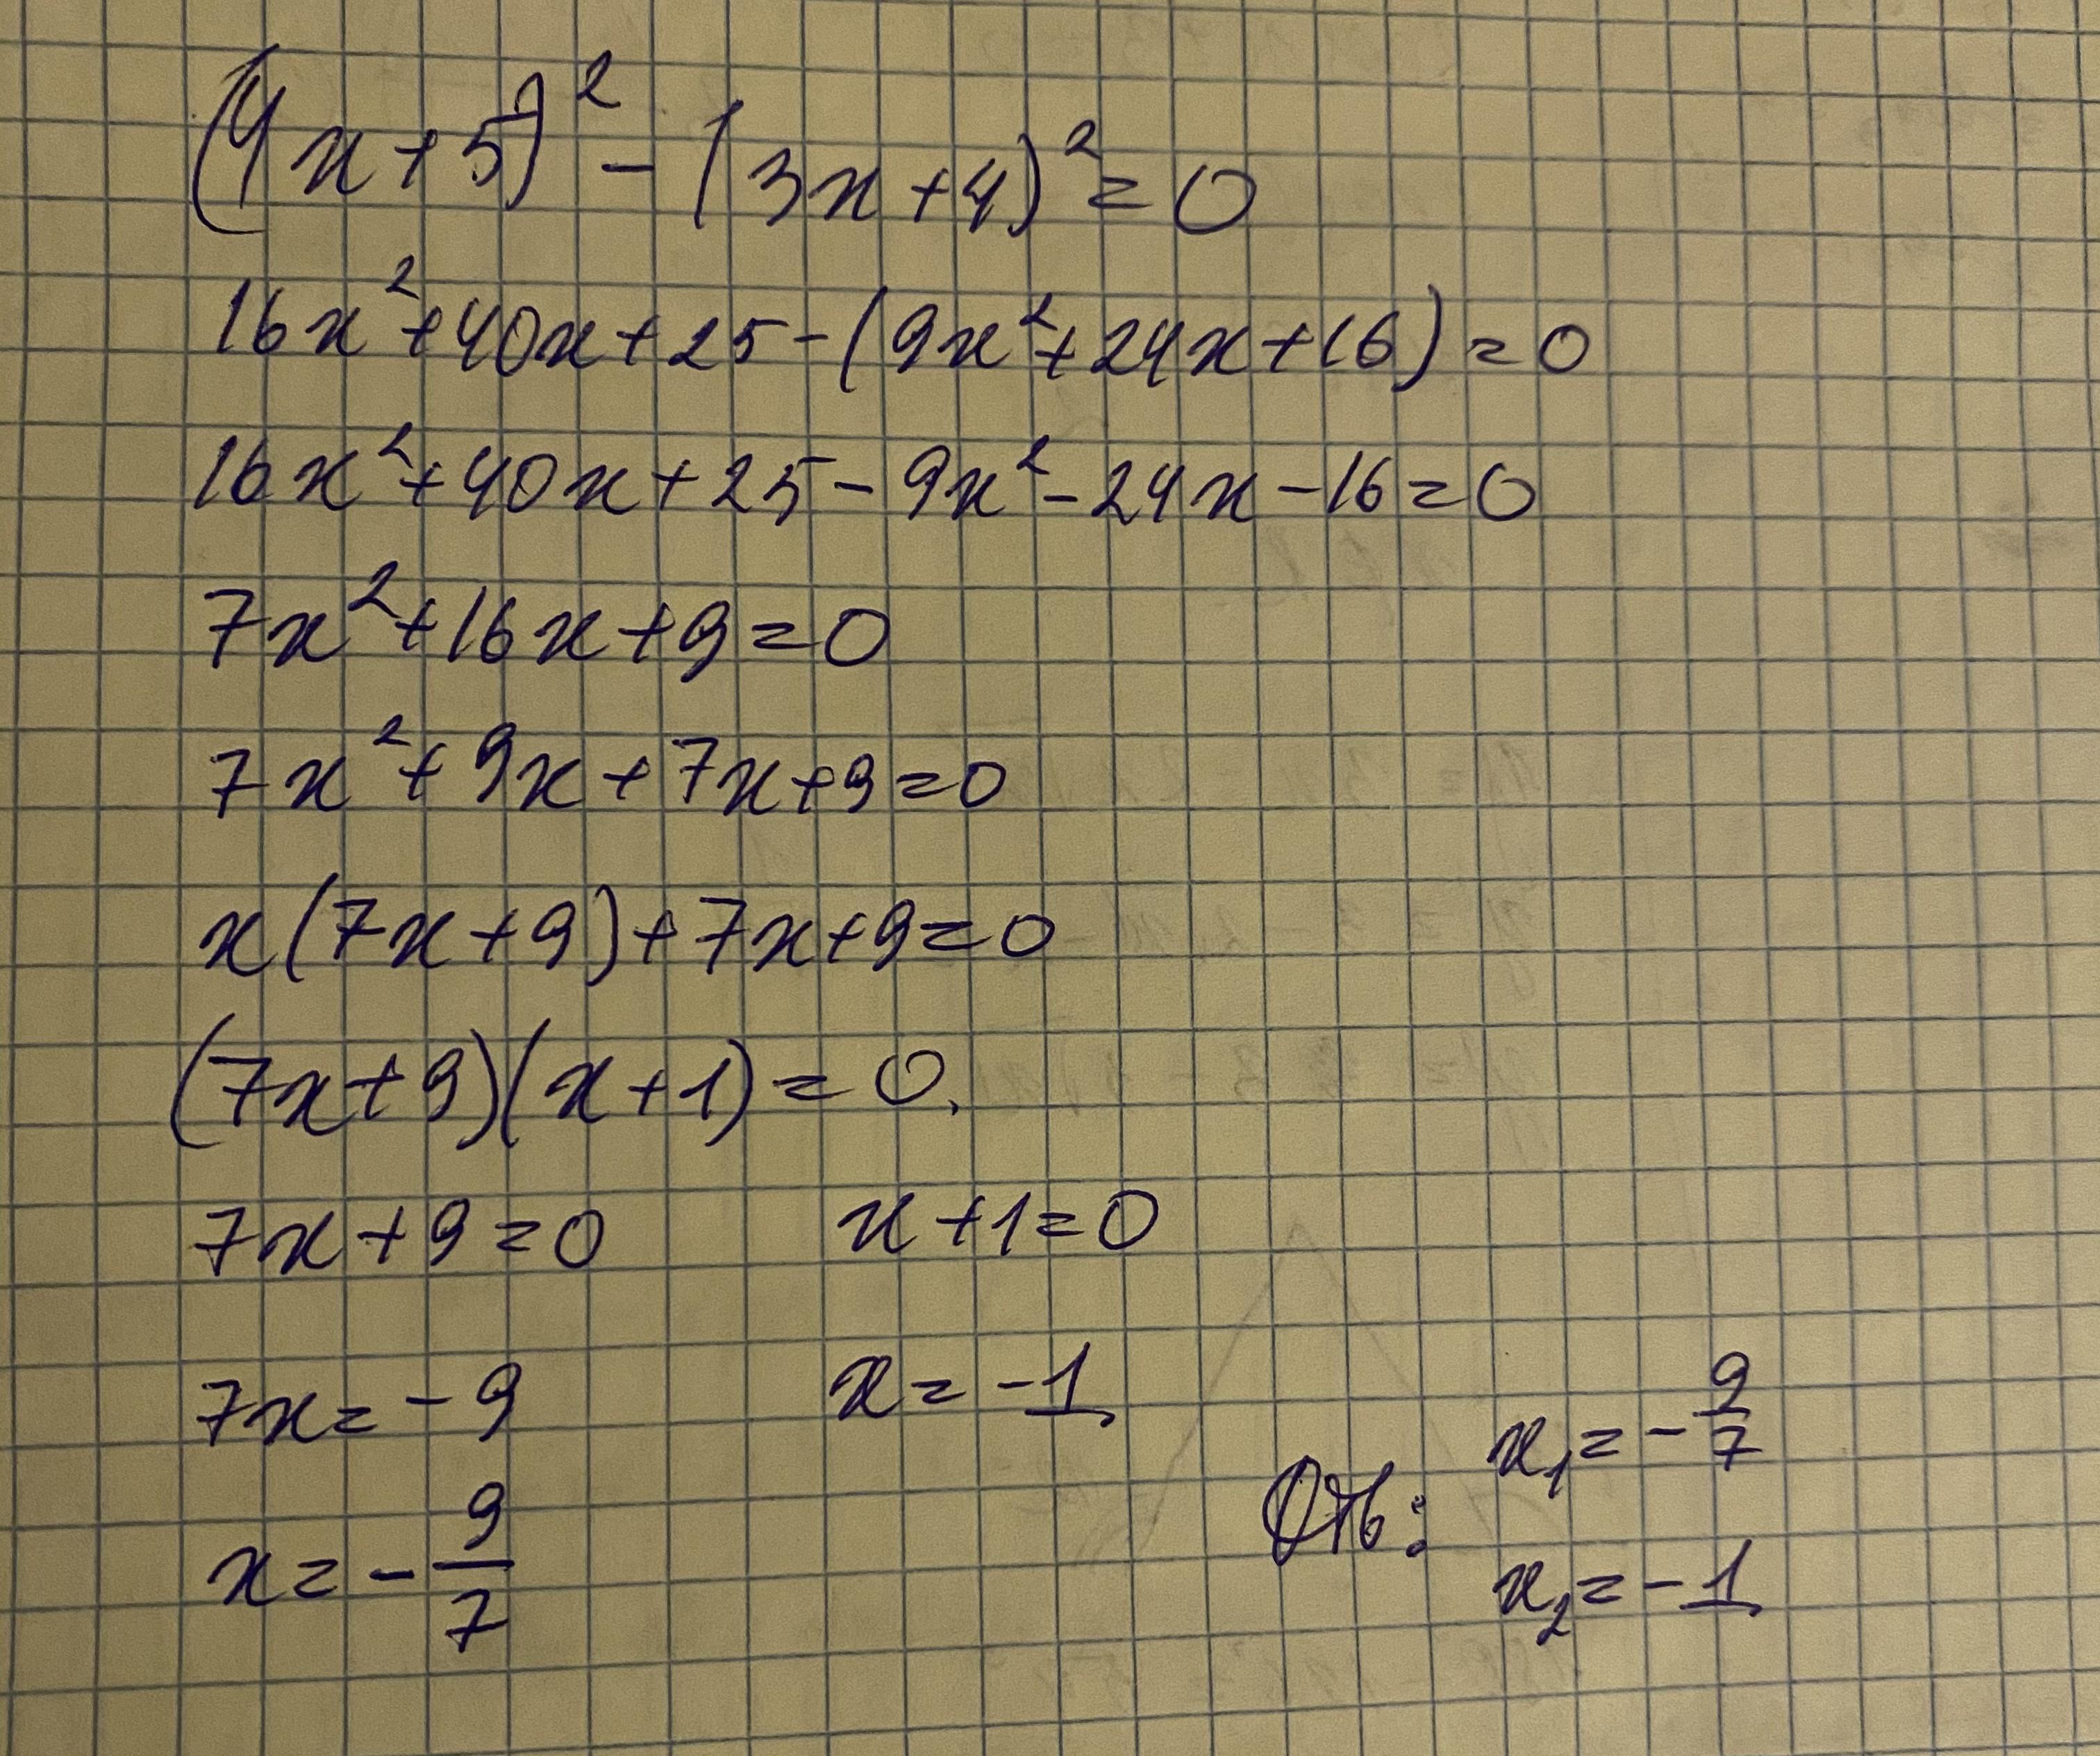 (4x+5)² - (3x+4)² = 0
16x²+40x+25-(9x²+24x+16)=0
16x²+40x+25-9x²-24x-16=0
7x²+16x+9=0
7x²+9x+7x+9=0
x(7x+9)+7x+9=0
(7x+9)(x+1)=0.
7x+9=0 x+1=0
7x=-9 x=-1
x=-9/7
Отв: x₁=-9/7
x₂=-1